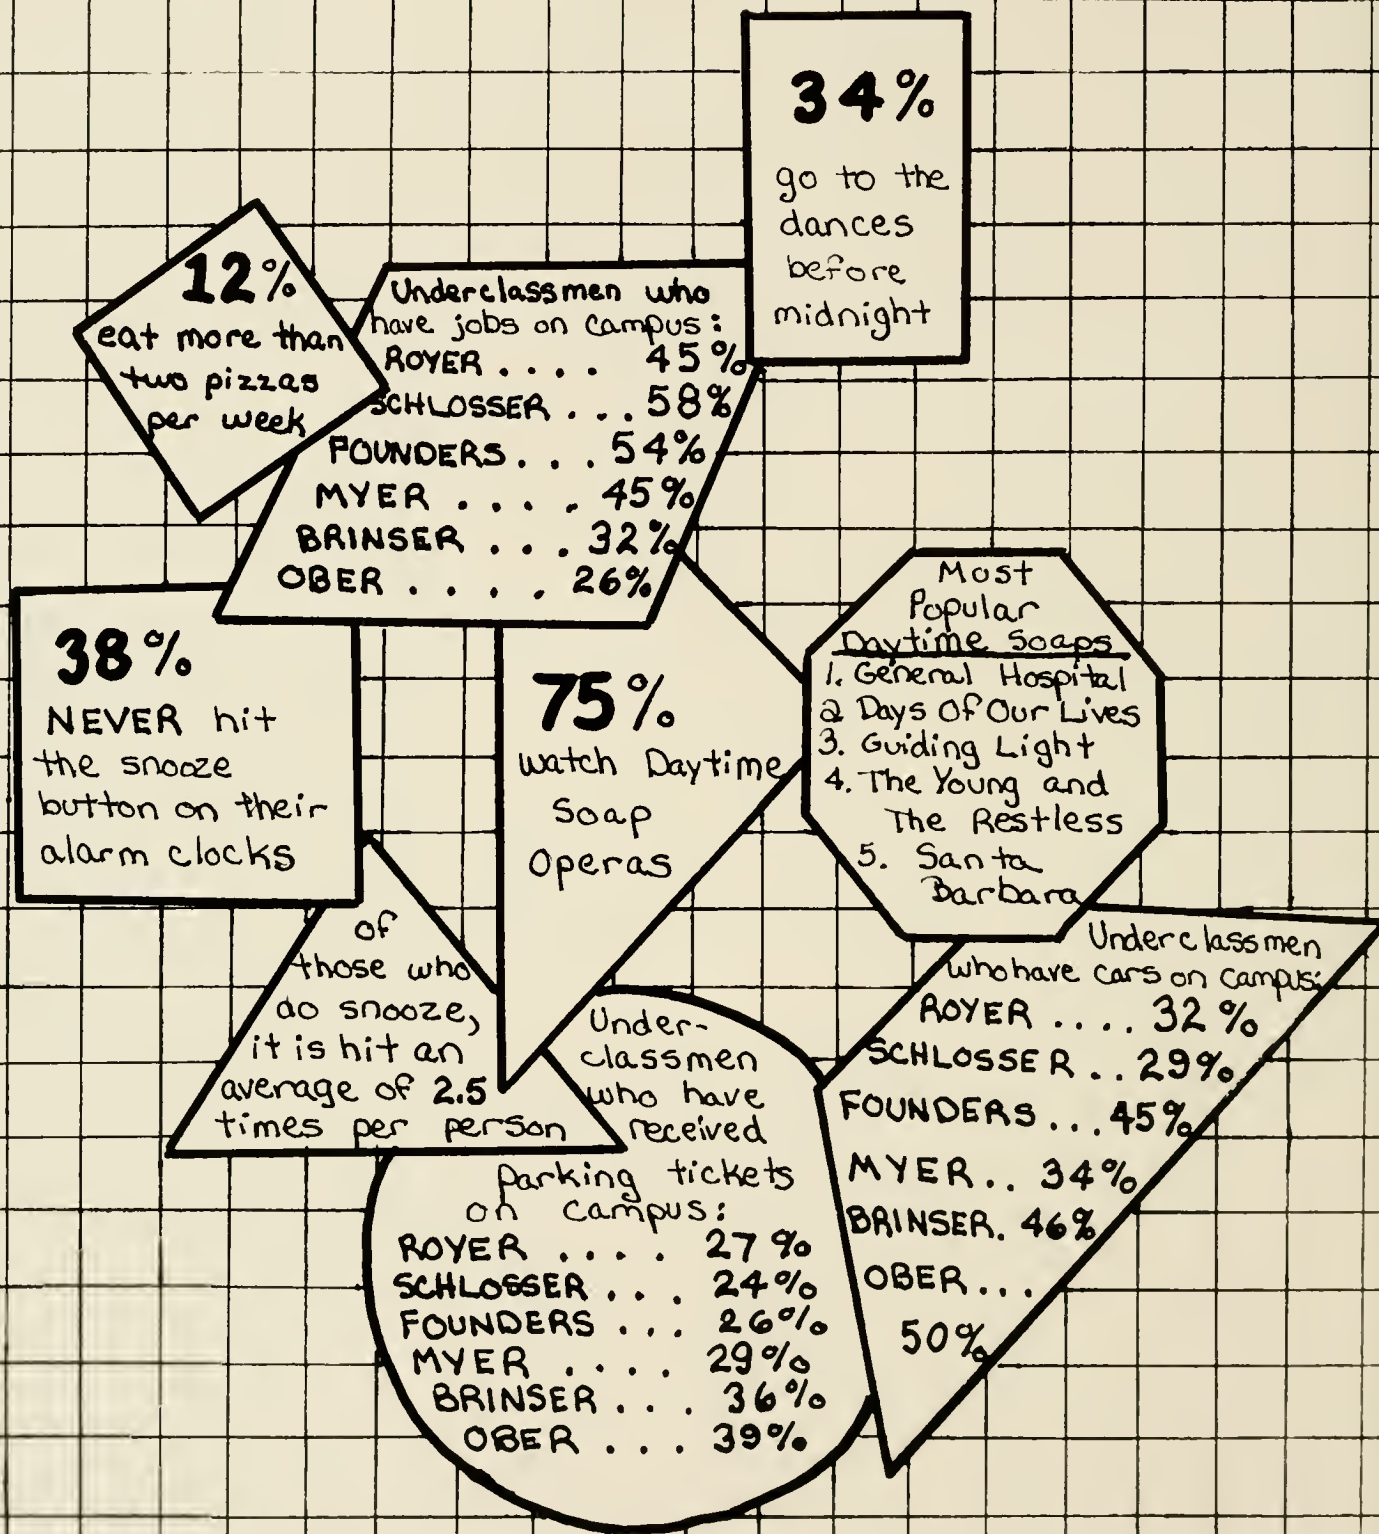 34%
go to the
dances
before
midnight
12%
eat more than
two pizzas
per week
Underclassmen who
have jobs on campus:
ROYER .... 45%
SCHLOSSER ... 58%
FOUNDERS... 54%
MYER .... 45%
BRINSER ... 32%
OBER .... 26%
38%
NEVER hit
the snooze
button on their
alarm clocks
75%
watch Daytime
Soap
Operas
Most
Popular
Daytime Soaps
1. General Hospital
2 Days Of Our Lives
3. Guiding Light
4. The Young and
The Restless
5. Santa
Barbara
of
those who
do snooze,
it is hit an
average of 2.5
times per person
Under-
classmen
who have
received
parking tickets
on campus:
ROYER .... 27%
SCHLOSSER ... 24%
FOUNDERS ... 26%
MYER .... 29%
BRINSER ... 36%
OBER ... 39%
Underclassmen
who have cars on campus:
ROYER .... 32%
SCHLOSSER .. 29%
FOUNDERS ... 45%
MYER.. 34%
BRINSER. 46%
OBER ...
50%